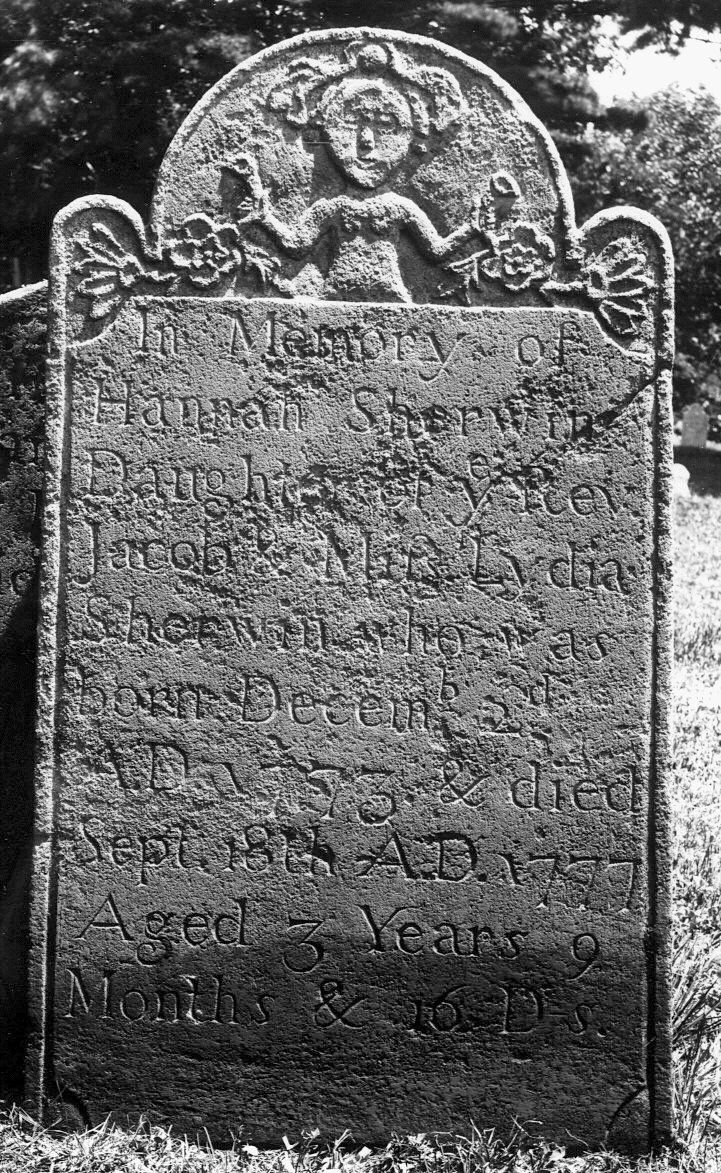 In Memory of
Hannah Sherwin
Daught. of yᵉ Rev
Jacob & Mrſs Lydia
Sherwin who was
born Decemᵇ 2ᵈ
A.D. 1773 & died
Sept. 18th A.D. 1777
Aged 3 Years 9
Months & 16 D-s.